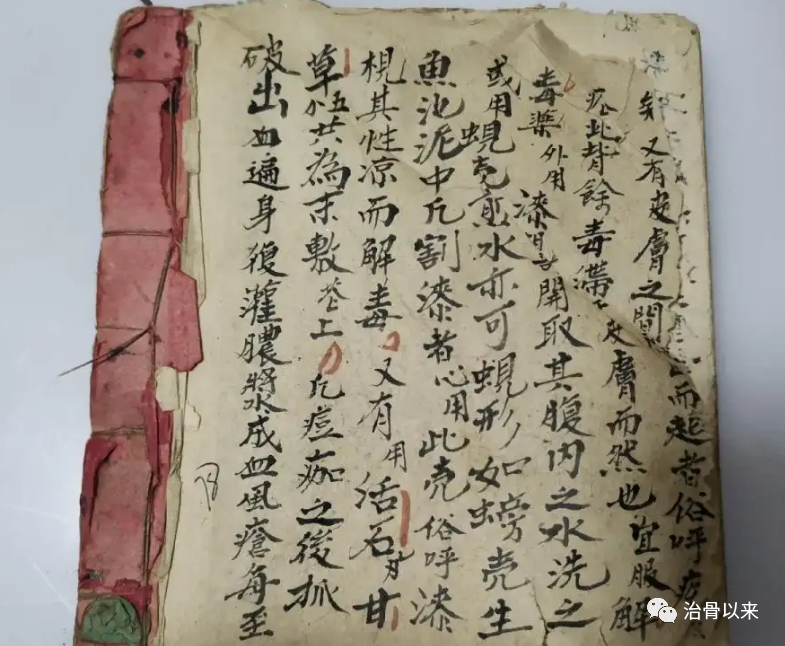 又有皮膚之間而起者俗呼
此皆餘毒滯皮膚而然也宜服解
毒藥外用漆開取其腹内之水洗之
或用蜆壳煎水亦可蜆形如螃壳生
魚池泥中凡割漆者必用此壳俗呼漆
梘其性凉而解毒又有用活石甘
草五共為末敷上凡痘痂之後抓
破出血遍身復灌膿漿成血風瘡每至
治骨以来